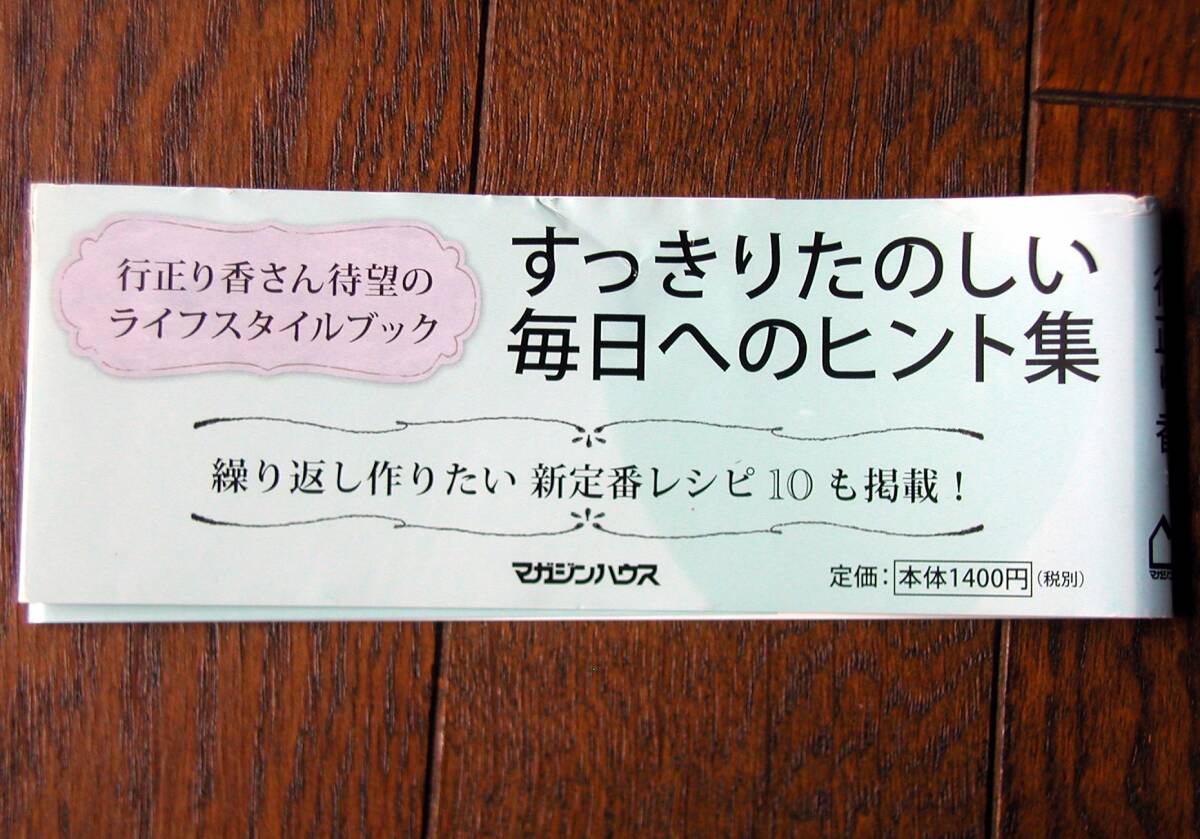 行正り香さん待望の
ライフスタイルブック
すっきりたのしい
毎日へのヒント集
繰り返し作りたい 新定番レシピ10も掲載！
マガジンハウス
定価：本体1400円（税別）